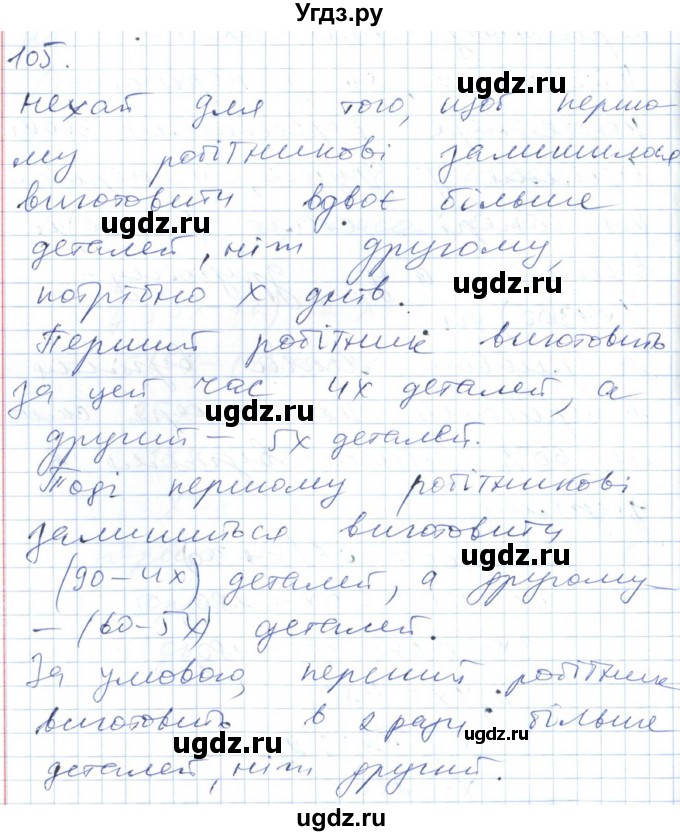 Угдз.ру
105.
Нехай для того, щоб першо-
му робітникові залишилося
виготовити вдвоє більше
деталей, ніж другому,
потрібно x днів.
Перший робітник виготовить
за цей час 4x деталей, а
другий – 5x деталей.
Тоді першому робітникові
залишиться виготовити
(90-4x) деталей, а другому –
– (60-5x) деталей.
За умовою, перший робітник
виготовить в 2 рази більше
деталей, ніж другий.
ugdz.ru
ugdz.ru
ugdz.ru
ugdz.ru
ugdz.ru
ugdz.ru
ugdz.ru
ugdz.ru
ugdz.ru
ugdz.ru
ugdz.ru